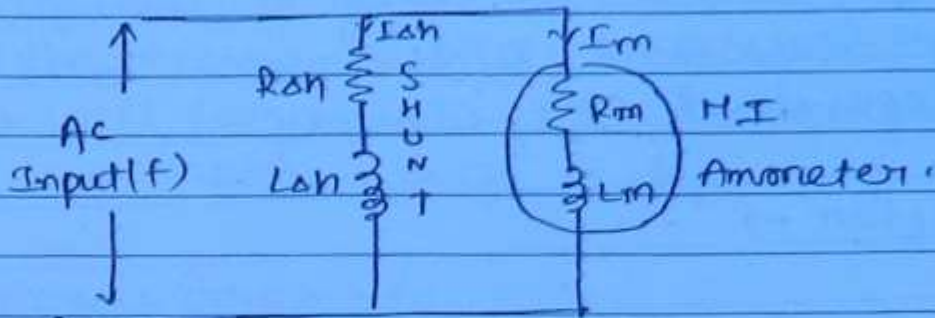 Ish
Im
Rsh
SHUNT
Rm
M.I.
Ac
Input(f)
Lsh
Lm
Ammeter.